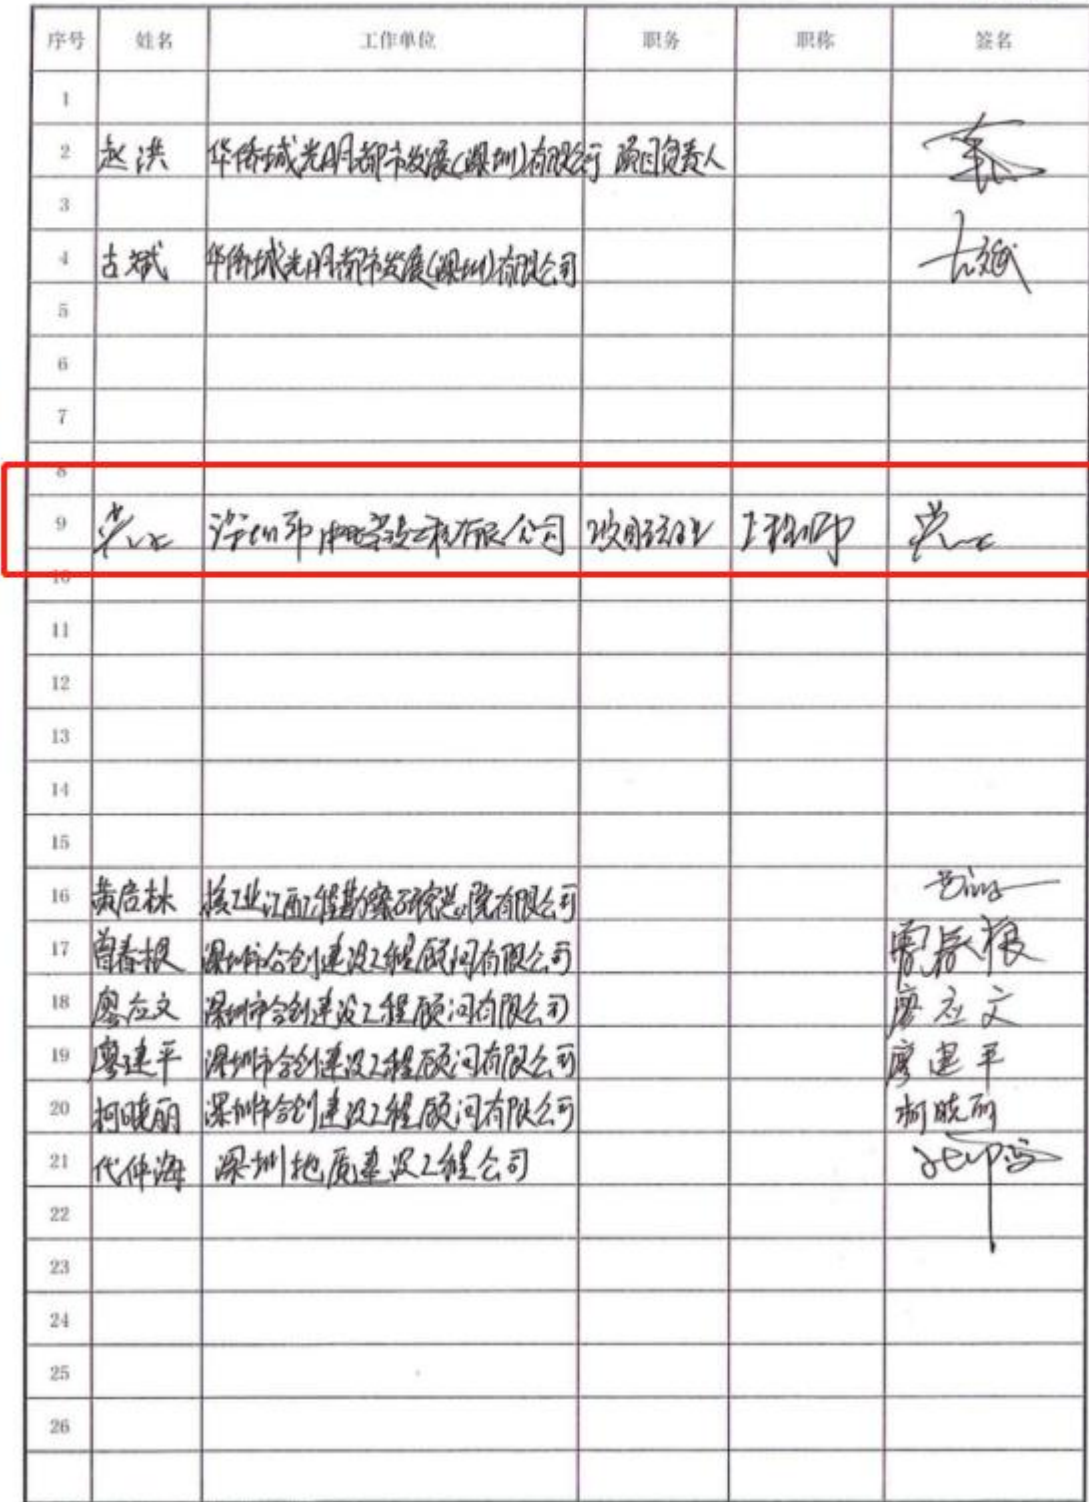 序号 姓名 工作单位 职务 职称 签名
1
2 赵洪 华侨城光明都市发展(深圳)有限公司 项目负责人
3
4 古斌 华侨城光明都市发展(深圳)有限公司 古斌
5
6
7
8
9 深圳市 有限公司 项目经理 工程师
10
11
12
13
14
15
16 黄启林 核工业江西工程勘察研究总院有限公司
17 曾春根 深圳市合创建设工程顾问有限公司 曾春根
18 廖应文 深圳市合创建设工程顾问有限公司 廖应文
19 廖建平 深圳市合创建设工程顾问有限公司 廖建平
20 柯晓丽 深圳市合创建设工程顾问有限公司 柯晓丽
21 代仲海 深圳地质建设工程公司
22
23
24
25
26